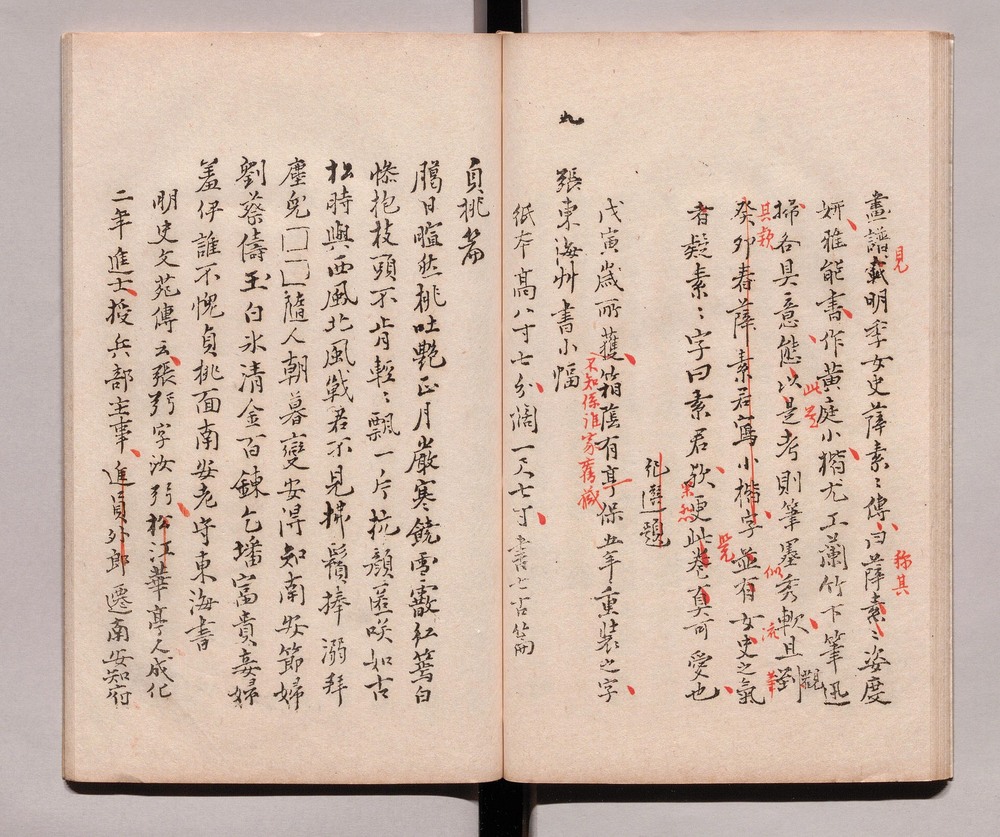 畫譜載明季女史薛素素傳曰薛素素姿度
見
稱其
妍雅能書作黃庭小楷尤工蘭竹下筆迅
掃各具意態以是考則筆墨秀軟且
觀
此是
癸卯春薛素君寫小楷字並有女史之氣
其款
似
流筆
者疑素素字曰素君歟更此卷真可愛也
果然
覽
紀選題
戊寅歲所獲箱蔭有享保五年重裝之字
不知係誰家舊藏
九
張東海艸書小幅
紙本高八寸七分濶一尺七寸書七古篇
貞桃篇
臈日暄然桃吐艷正月嚴寒饒雪霰紅蔫白
慘抱枝頭不肯輕輕飄一片花顏匿咲如古
松時與西風北風戰君不見掀鬚捧溺拜
塵兒□□隨人朝暮變安得知南安節婦
劉蔡儔玉白氷清金百鍊乞墦富貴妾婦
羞伊誰不愧貞桃面南安老守東海書
明史文苑傳云張弼字汝弼松江華亭人成化
二年進士授兵部主事進員外郎遷南安知府